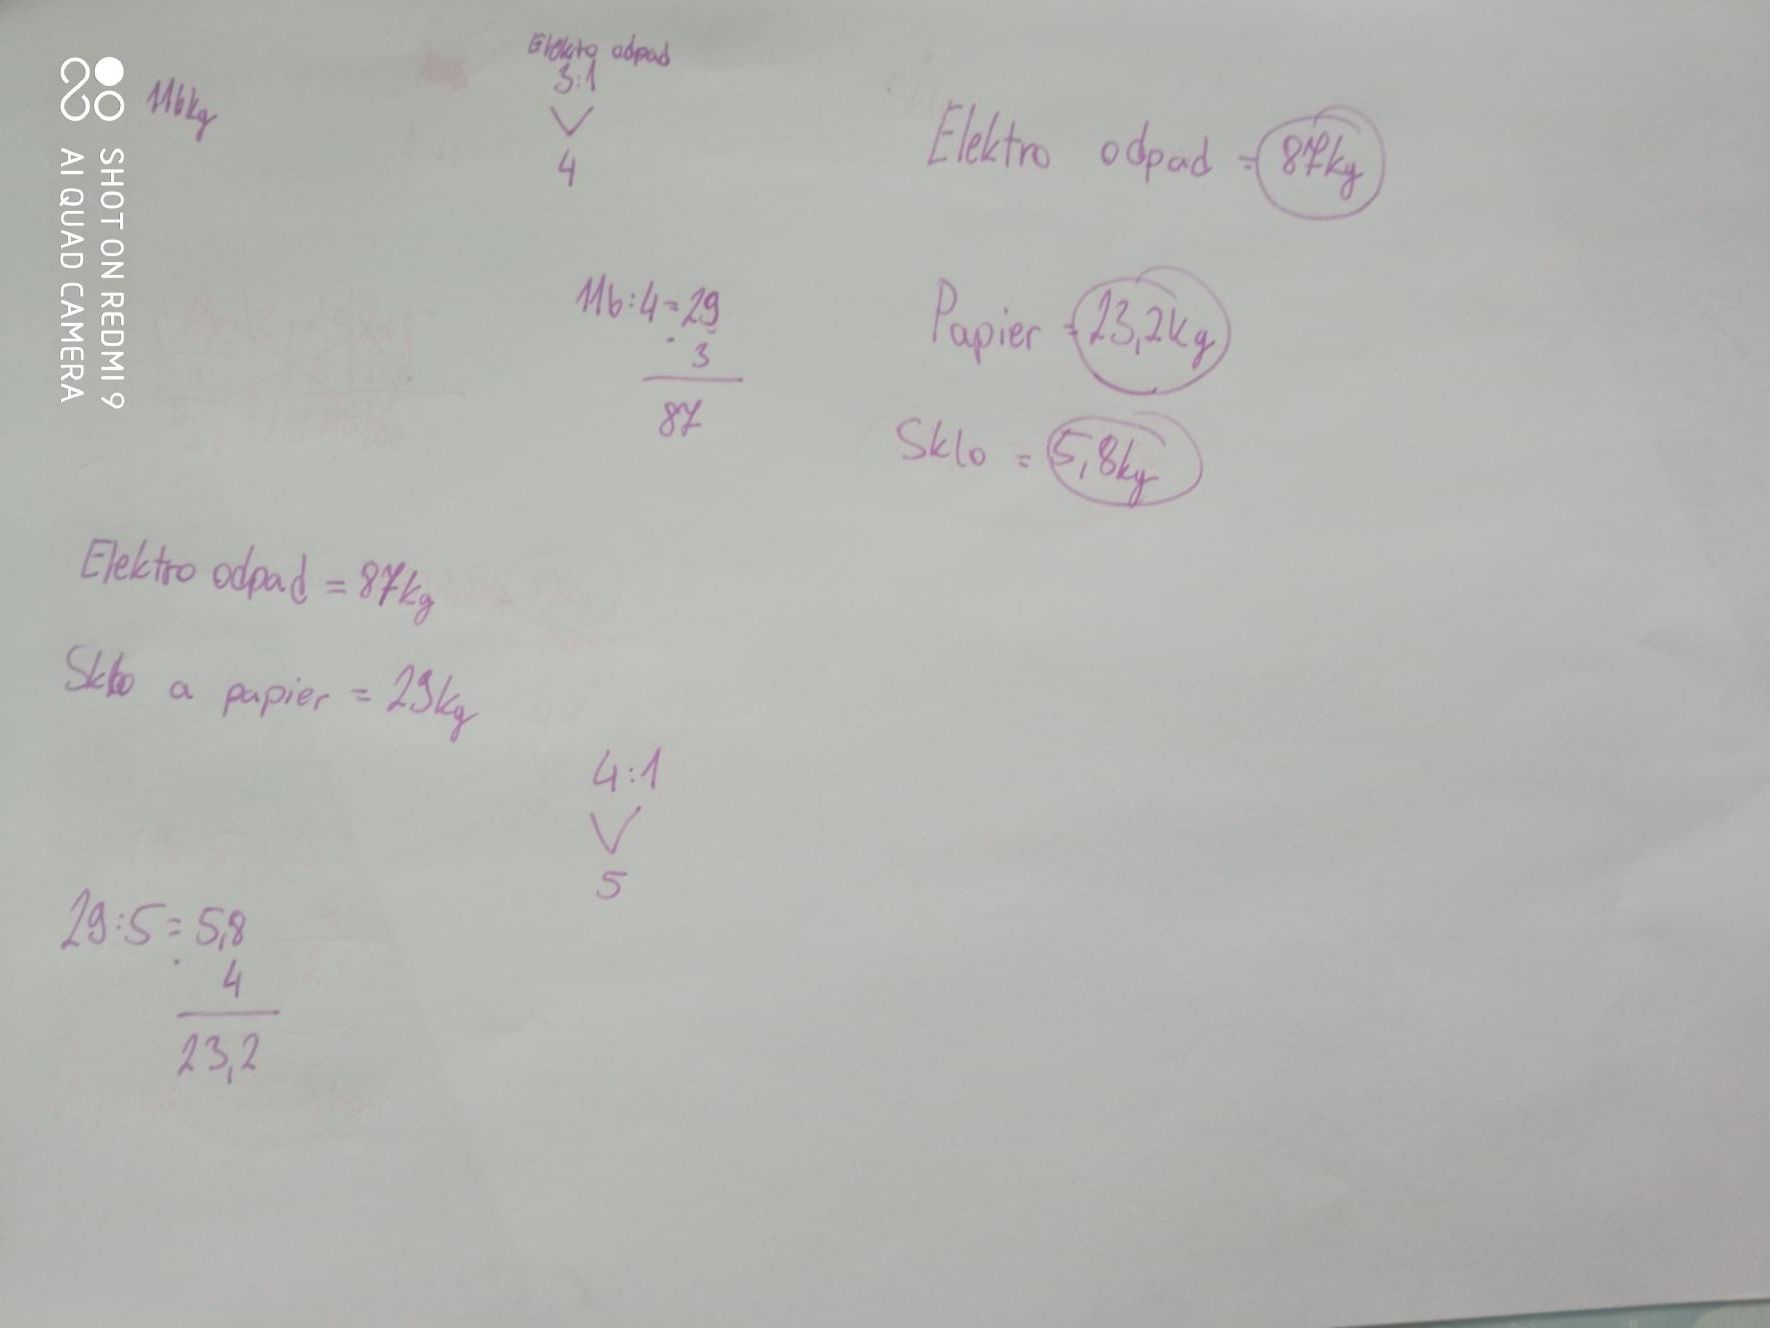 SHOT ON REDMI 9
AI QUAD CAMERA
116kg
Elektro odpad
3:1
4
116:4=29
. 3
87
Elektro odpad = 87kg
Papier = 23,2kg
Sklo = 5,8kg
Elektro odpad = 87kg
Sklo a papier = 29kg
4:1
5
29:5=5,8
. 4
23,2